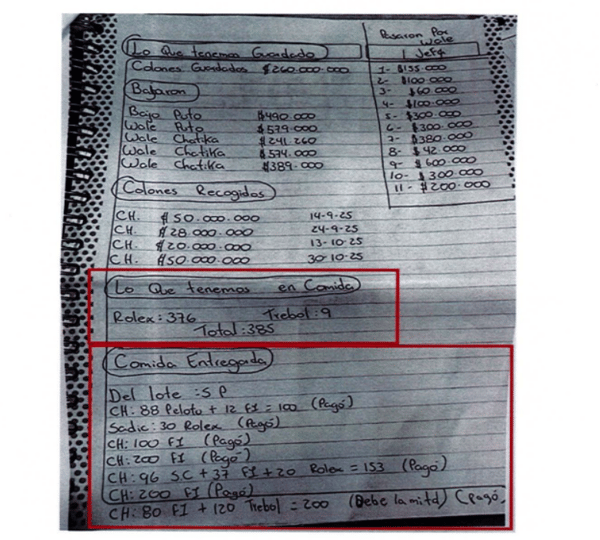 Lo Que tenemos Guardado
Colones Guardados $260.000.000
Bajaron
Bajo Puto $490.000
Wale Puto $579.000
Wale Chatika $241.260
Wale Chatika $574.000
Wale Chatika $389.000
Pasaron Por Wale
1 Jef4
1- $135.000
2- $100.000
3- $60.000
4- $100.000
5- $300.000
6- $300.000
7- $380.000
8- $42.000
9- $600.000
10- $300.000
11- $200.000
Colones Recogidos
CH. $50.000.000 14-9-25
CH. $28.000.000 24-9-25
CH. $20.000.000 13-10-25
CH. $50.000.000 30-10-25
Lo Que tenemos en Comida
Rolex: 376 Trebol: 9
Total: 385
Comida Entregada
Del lote: S P
CH: 88 Peloto + 12 FI = 100 (Pagó)
Sadic: 30 Rolex (Pagó)
CH: 100 FI (Pagó)
CH: 200 FI (Pagó)
CH: 96 SC + 37 FI + 20 Rolex = 153 (Pagó)
CH: 200 FI (Pagó)
CH: 80 FI + 120 Trebol = 200 (Debe la mitd) (Pagó.